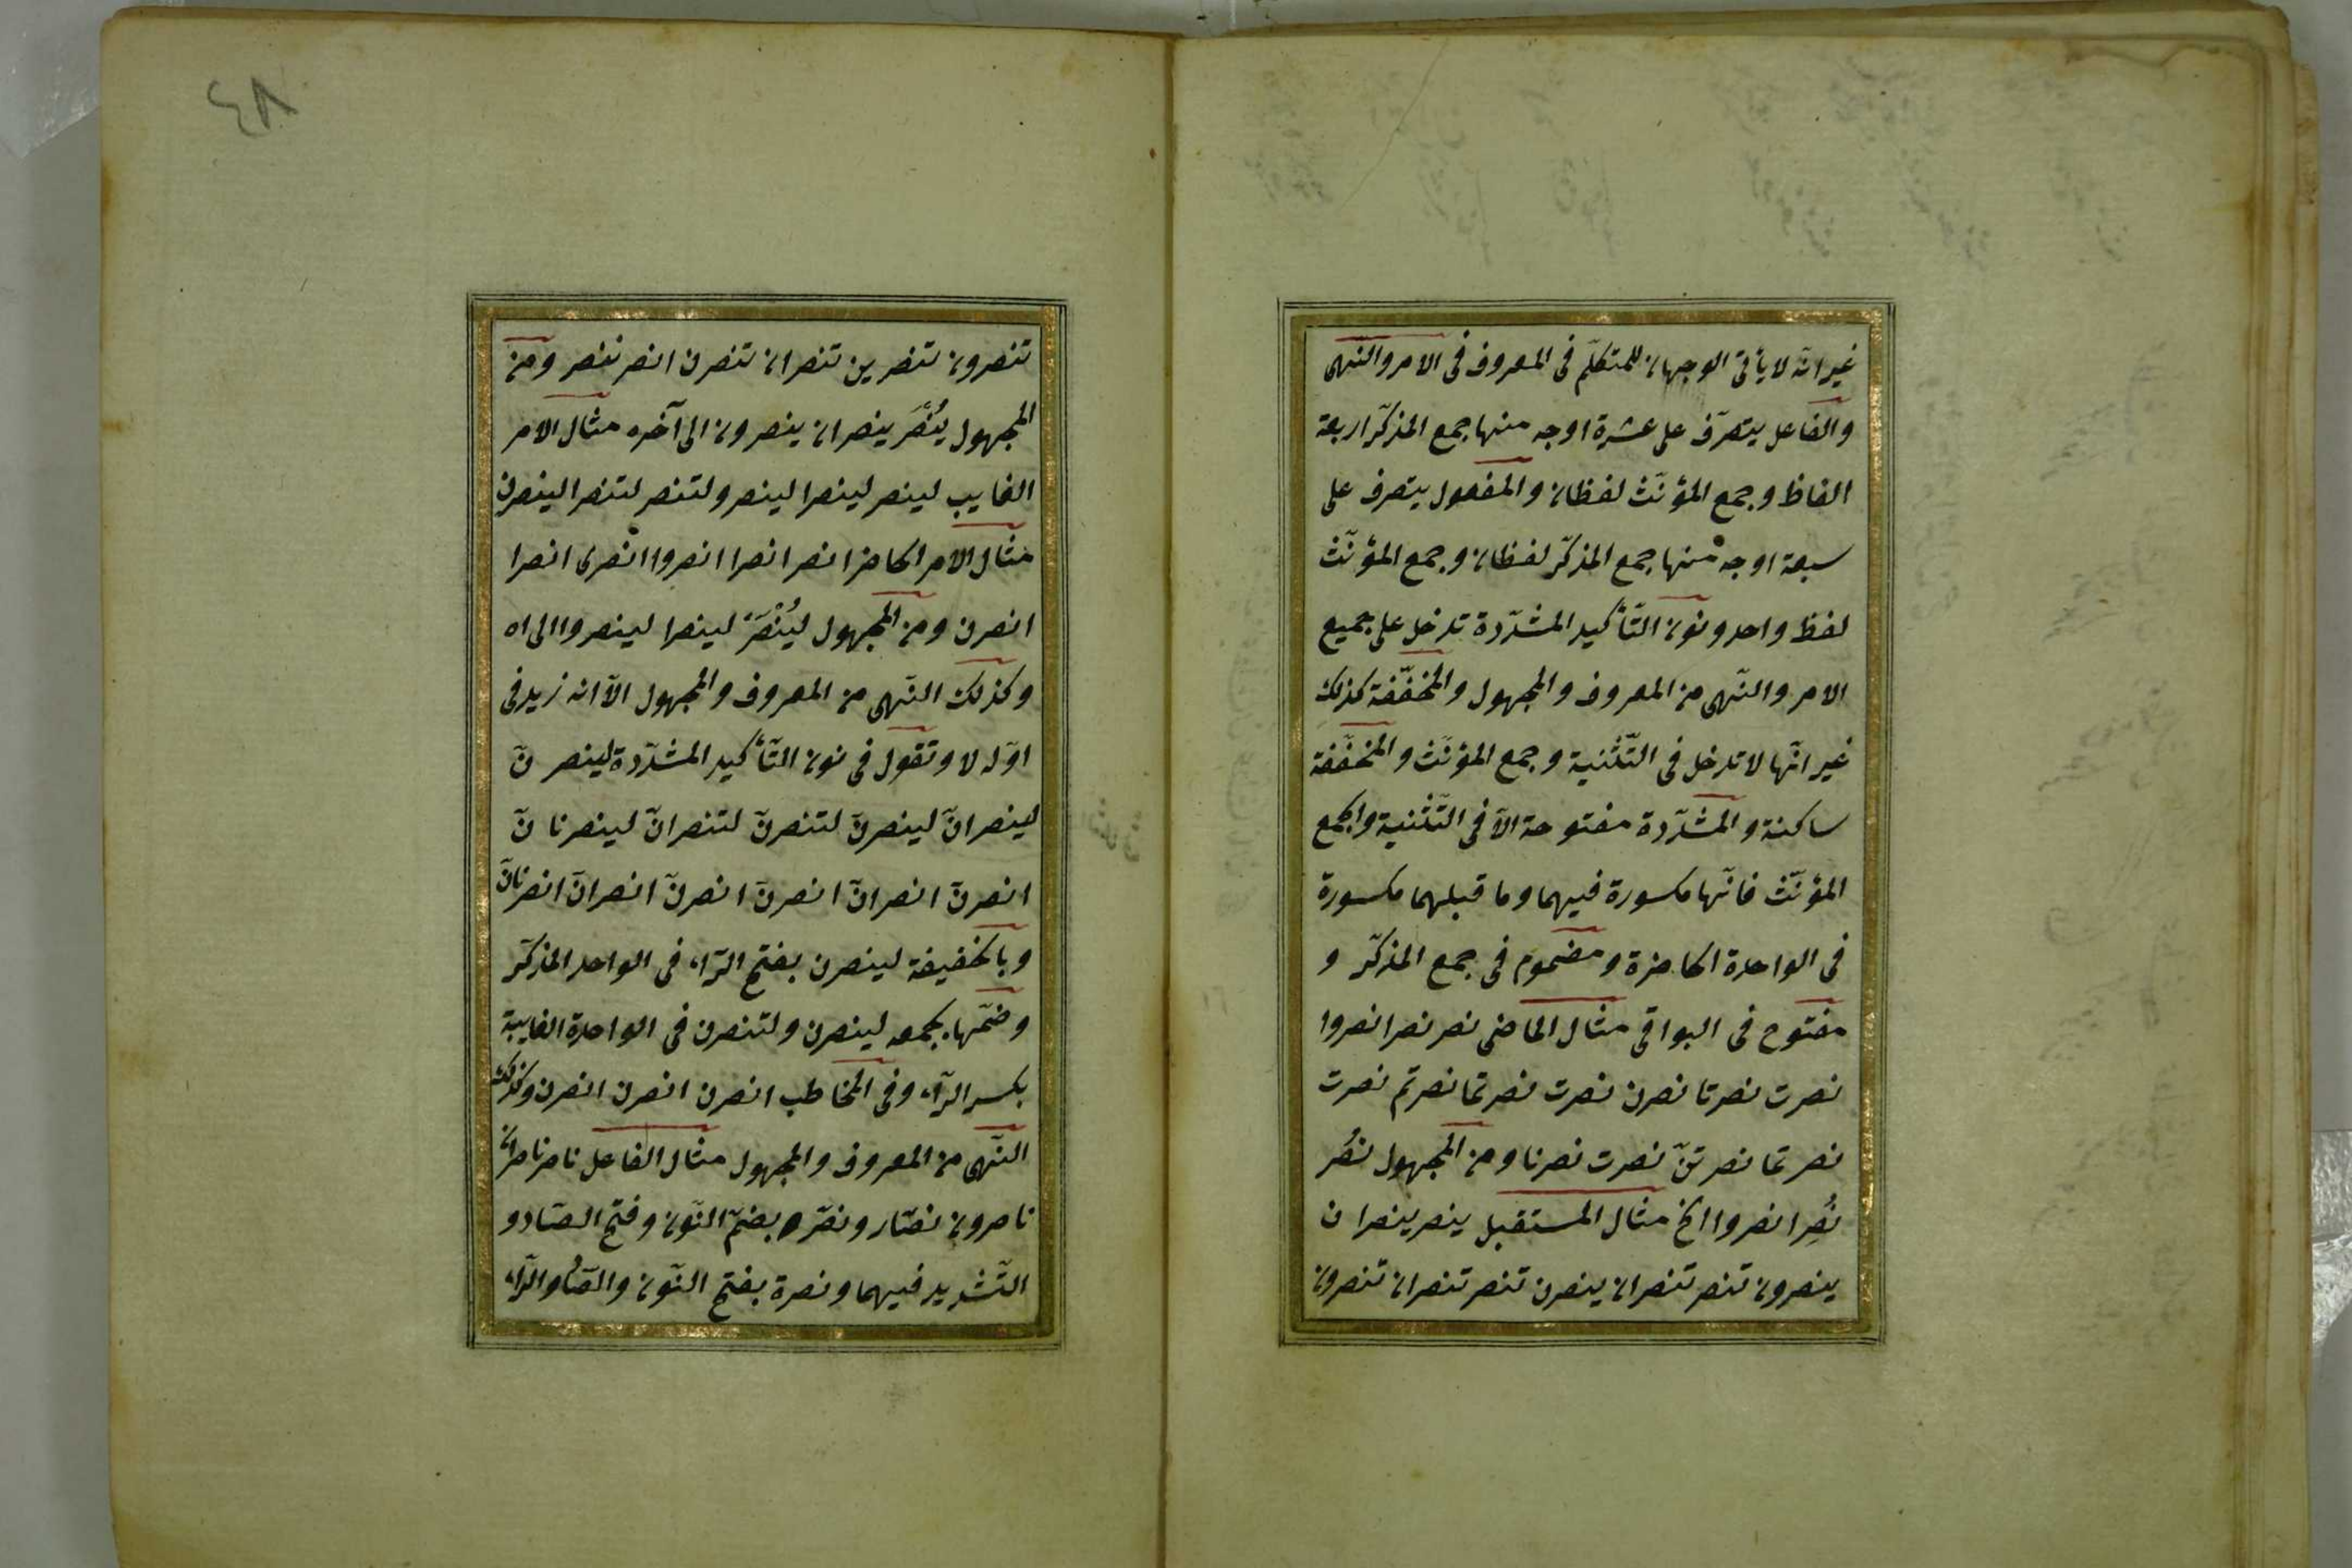 غير انّه لا يأتى الوجهان للمتكلّم فى المعروف فى الامر والنهى
والفاعل يتصرّف على عشرة اوجه منها جمع المذكّر اربعة
الفاظ وجمع المؤنّث لفظان والمفعول يتصرف على
سبعة اوجه منها جمع المذكّر لفظان وجمع المؤنّث
لفظ واحد ونون التّأكيد المشدّدة تدخل على جميع
الامر والنّهى من المعروف والمجهول والمخفّفة كذلك
غير انّها لا تدخل فى التّثنية وجمع المؤنّث والمخفّفة
ساكنة والمشدّدة مفتوحة الّا فى التّثنية والجمع
المؤنّث فانّها مكسورة فيهما وما قبلهما مكسورة
فى الواحدة الحاضرة ومضموم فى جمع المذكّر و
مفتوح فى البواقى مثال الماضى نصر نصرا نصروا
نصرت نصرتا نصرن نصرت نصرتما نصرتم نصرت
نصرتما نصرتنّ نصرت نصرنا ومن المجهول نصُر
نُصِرا نصروا الخ مثال المستقبل ينصر ينصران
ينصرون تنصر تنصران ينصرن تنصر تنصران تنصرون
٤٨
تنصرون تنصرين تنصران تنصرن انصر ننصر ومن
المجهول يُنْصَر ينصران ينصرون الى آخره مثال الامر
الغايب لينصر لينصرا لينصرو لتنصر لتنصرا لينصرن
مثال الامر الحاضر انصر انصرا انصروا انْصرى انصرا
انصرن ومن المجهول ليُنْصَرْ لينصرا لينصروا الى اه
وكذلك النّهى من المعروف والمجهول الّا انه زيد فى
اوّله لا وتقول فى نون التّأكيد المشدّدة لينصرنّ
لينصرانّ لينصرنّ لتنصرنّ لتنصرانّ لينصرنانّ
انصرنّ انصرانّ انصرنّ انصرنّ انصرانّ انصرنانّ
وبالخفيفة لينصرن بفتح الرّاء فى الواحد المذكّر
وضمّها بجمعه لينصرن ولتنصرن فى الواحدة الغايبة
بكسر الرّاء وفى المخاطب انصرن انصرن انصرن وكذلك
النّهى من المعروف والمجهول مثال الفاعل ناصر ناصران
ناصرون نصّار ونصّر بضمّ النّون وفتح الصّاد و
التّشديد فيهما ونصرة بفتح النّون والصّاد والرّاء